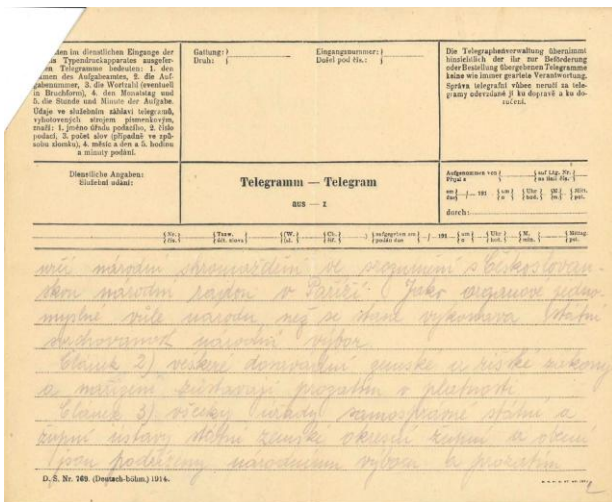 den im dienstlichen Eingange der
Typendruckapparates ausgefer-
Telegramme bedeuten: 1. den
men des Aufgabeamtes, 2. die Auf-
gabenummer, 3. die Wortzahl (eventuell
in Bruchform), 4. den Monatstag und
5. die Stunde und Minute der Aufgabe.
Údaje ve služebním záhlaví telegramů,
vyhotovených strojem písmenkovým,
značí: 1. jméno úřadu podacího, 2. číslo
podací, 3. počet slov (případně ve způ-
sobu zlomku), 4. měsíc a den a 5. hodinu
a minuty podání.
Gattung:
Druh:
Eingangsnummer:
Došel pod čís.:
Die Telegraphenverwaltung übernimmt
hinsichtlich der ihr zur Beförderung
oder Bestellung übergebenen Telegramme
keine wie immer geartete Verantwortung.
Správa telegrafní vůbec neručí za tele-
gramy odevzdané jí ku dopravě a ku do-
ručení.
Dienstliche Angaben:
Služební udání:
Telegramm — Telegram
aus — z
Aufgenommen von auf Ltg. Nr.
Přijal z na lini čís.
am / 191 um Uhr M. Mitt.
dne o hod. m. pol.
durch:
Nr. Taxw. W. Ch. aufgegeben am / 191 um Uhr M. Mittag
čís. sl. šif. podáno dne o hod. min. pol.
určí národní shromáždění ve srozumění s Českosloven-
skou národní radou v Paříži. Jako orgánové jedno-
myslné vůle národu než se stane vykonává státní
svrchovanost národní výbor
Článek 2) veškeré dosavadní zemské a říšské zákony
a nařízení zůstávají prozatím v platnosti
Článek 3) všecky úřady samosprávné státní a
župní ústavy státní zemské okresní župní a obecní
jsou podřízeny národnímu výboru a prozatím
D. S. Nr. 769. (Deutsch-böhm.) 1914.
2